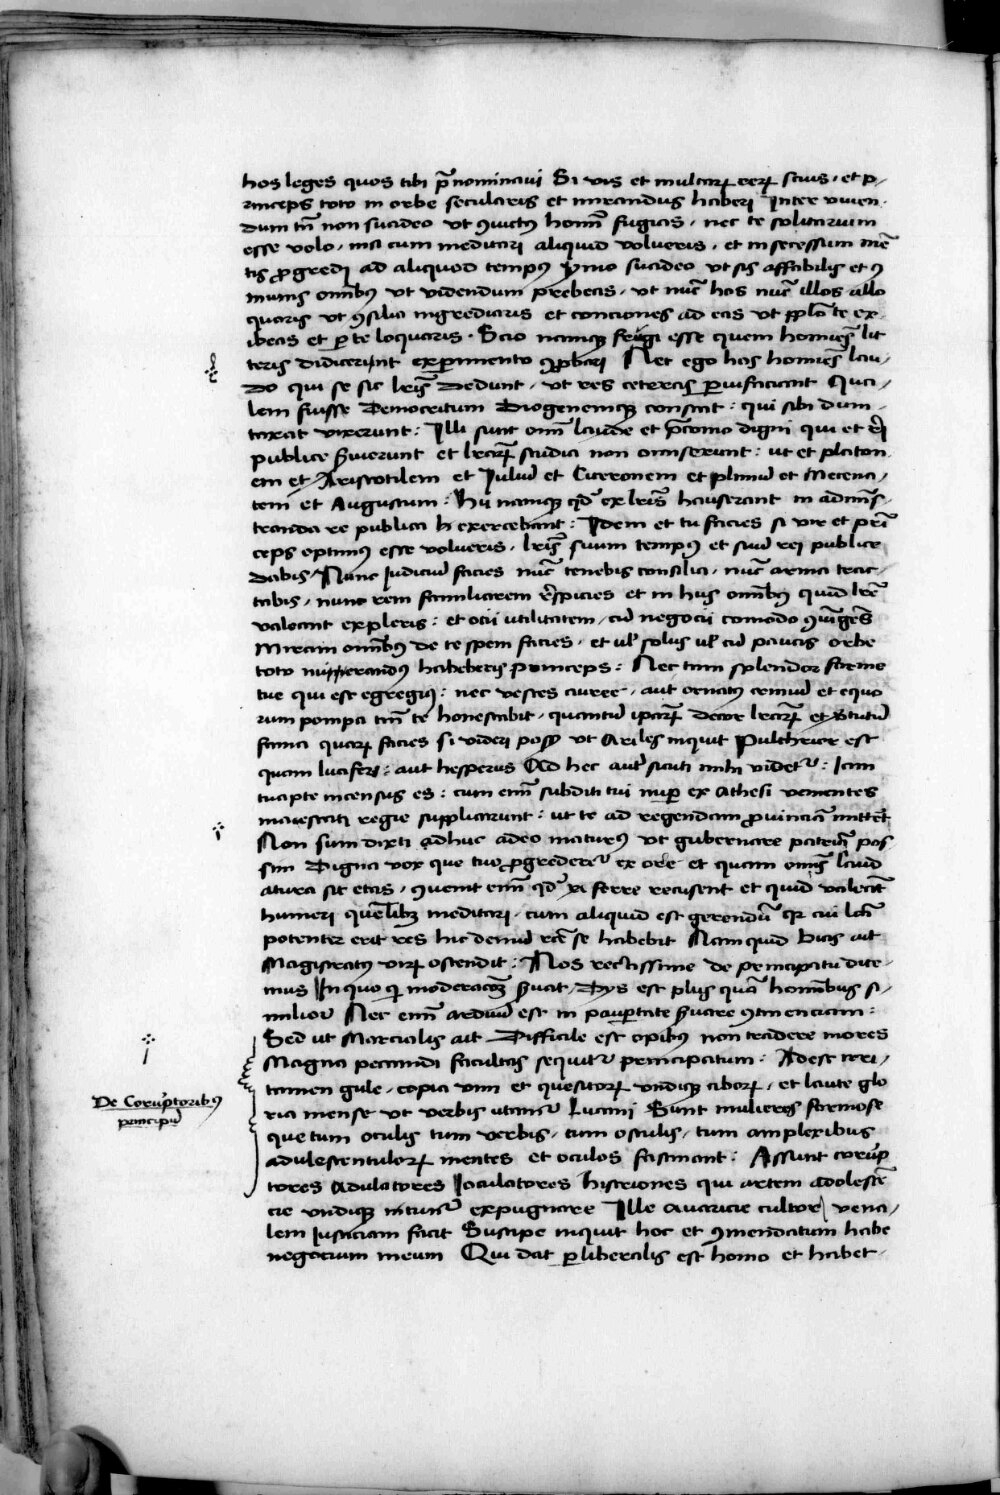 hos leges quos tibi p̄nominaui Si vis et multaꝝ reꝝ scius · et p/
rinceps toto in orbe secularis et mirandus haberi Inter viuen·
dum tn̄ non suadeo vt ꝯuictꝰ homīn fugias · nec te solitarium
esse volo · nisi cum meditari aliquid volueris · et in secessum mē
tis ꝓgredi ad aliquod tempꝰ ymo suadeo vt sis affabilis et ꝯ
munis om̄ibꝰ vt videndum prebeas · vt nūc hos nūc illos allo
quaris vt ꝯsilia ingrediaris et conciones ad eas vt pp̄lo te ex
ibeas et ꝑ te loquaris · Scio namqꝫ frugi esse quem homīes lit
teris didicerunt experimento ꝯprobari Nec ego has homīes lau/
do qui se sic lr̄is dedunt · vt res ceteras ꝑuifaciant Qua/
lem fuisse Democritum Diogenemqꝫ constat : qui sibi dum
taxat vixerunt : Illi sunt om̄i laude et p̄conio digni qui et rei
publice ẜuierunt et lr̄aꝝ studia non omiserunt : ut et platon
em et Aristotilem et Juliū et Ciceronem et pliniū et Mecena/
tem et Augustum : hii namqꝫ qd̄ ex lr̄is hauserant in adminis
tranda re publica h exercebant : Idem et tu facies si vir et prī
ceps optimꝰ esse volueris · lr̄is suum tempꝰ et suū rei publice
dabis/ Nunc Judiciū facies nūc tenebis consilia · nūc arma trac·
tabis · nunc rem familiarem respicies et in hiis om̄ibꝰ quid lr̄e
valeant expleris : et otii utilitatem / cū negocii comodo ꝯiūges
Miram om̄ibꝰ de te spem facies · et ul̄ solus ul̄ cū paucis orbe
toto numerandꝰ habeberis princeps : Nec tam splendor forme
tue qui est egregiꝰ : nec vestes auree · aut ornatꝰ armiū et equo
rum pompa tm̄ te honestabit · quantū ip̄aꝝ decor lr̄aꝝ et v̄tutū
fama quaꝝ facies si videri possꝫ vt Ariles inquit Pulchrior est
quam lucifer : aut hesperus Ad hec aut̄ sicuti mihi videtꝰ : Iam
tuapte incensus es : cum enī subditi tui nuꝑ ex Athesi venientes
maiestati regie supplicarunt : ut te ad regendam ꝓuinciā mittet̄
Non sum dixti adhuc adeo maturꝰ vt gubernare patriā pos
sim Digna vox que tuo ꝓgrederet̄ ex ore et quam om̄is laud
atura sit etas · ꝯuenit enī qd̄ ferre recusent et quid valeāt
humeri quēlibꝫ meditari · cum aliquid est gerendū qr cui lc̄a
potenter erit res hic demū rc̄e se habebit Nam quid bias ait
Magistratꝰ viꝝ ostendit : Nos rectissime de principatu dice·
mus In quo qi moderacōꝫ ẜuat / Dys est plus quā hominibus si·
milior Nec enī arduū est in pauꝑtate ẜuare ꝯtinenciam :
Sed ut Marcialis ait Difficile est opibꝰ non tradere mores
Magna peccandi facultas sequit̄ principatum : Adest irri/
tamen gule · copia vini et quesitoꝝ vndiqꝫ ciboꝝ · et laute glo
ria mense vt verbis utamur Lucani Sunt mulieres formose
que tum oculis tum verbis · tum osculis · tum amplexibus
adulescentuloꝝ mentes et oculos fascinant : Assunt corup
tores Adulatores Joculatores histriones qui artem adolescē
De Coruptoribꝰ
principū
cie vndiqꝫ nituntur expugnare Ille auaricie cultor vena/
lem iusticiam facit Suscipe inquit hoc et ꝯmendatum habe
negocium meum Qui dat ꝑliberalis est homo et habet ·